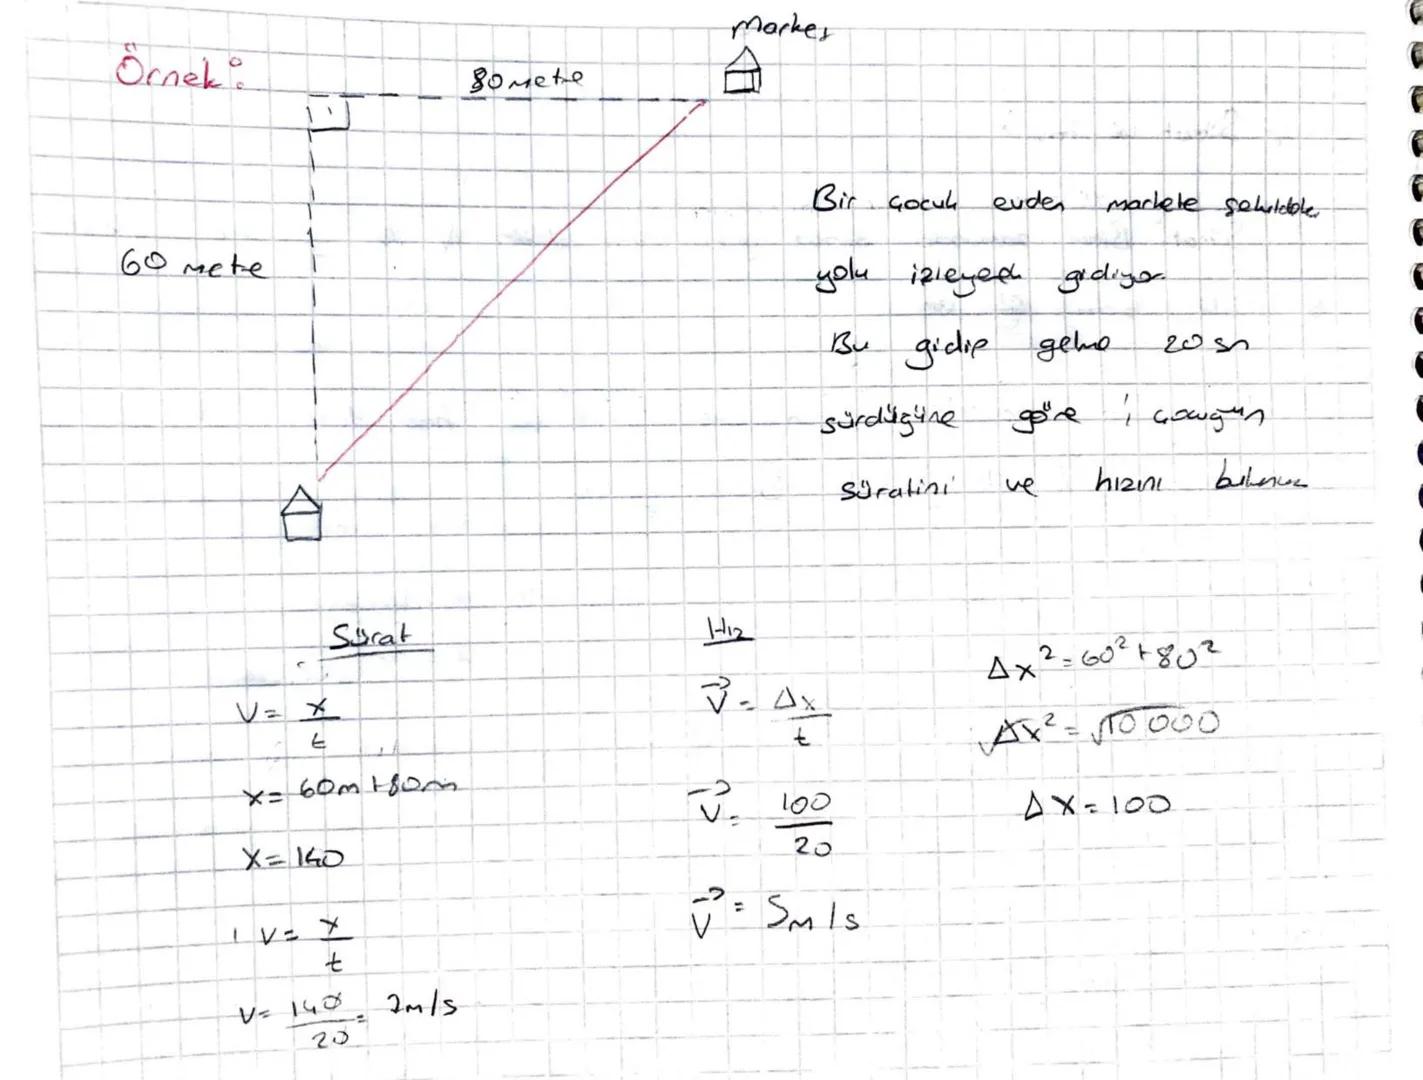 Örnek:
80 metre
Market
60 metre
Bir çocuk evden markete şekildeki
yolu izleyerek gidiyor
Bu gidip gelme 20 sn
sürdüğüne göre ; çocuğun
süratini ve hızını bulunuz
Sürat
V = x / t
x = 60m + 80m
x = 140
V = x / t
V = 140 / 20 = 7m/s
Hız
V⃗ = Δx / t
V⃗ = 100 / 20
V⃗ = 5m/s
Δx² = 60² + 80²
√Δx² = √10 000
Δx = 100